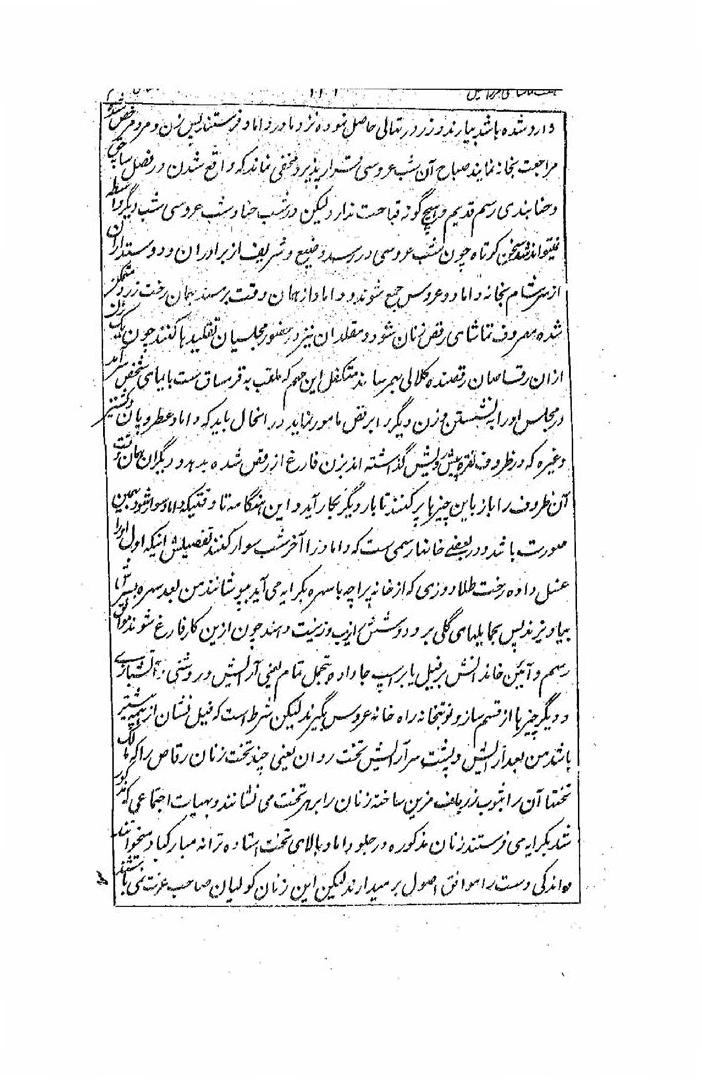 وارد شده باشد بیارند و زر در تهالی حاصل نموده نزد مادر داماد فرستند پس زن و مرد مرخص شده
مراجعت بخانه نمایند صباح آن شب عروسی قرار پذیرد مخفی نماند که واقع شدن در فصل سابق
و حنابندی رسم قدیم و هیچ گونه قباحت ندارد لیکن در شب حنا و شب عروسی شب دیگر واسطه
نمیتواند شد سخن کوتاه چون شب عروسی در رسد وضیع و شریف از برادران و دوستداران
از سر شام بخانه داماد و عروس جمع شوند و داماد از همان وقت بر مسند بهمان رخت زرد متمکن
شده مصروف تماشای رقص زنان شود و مقلدان نیز در حضور مجلسیان تقلیدها کنند چون یک زن
ازان رقاصان رقصنده کلالی بهم رساند متکفل این مهم که ملقب به قرمساق ست یا بپای شخص سرآمد
در مجلس او را به نشستن و زن دیگر را برقص مامور نماید در انحال باید که داماد عطر و پان و کشتیز
و غیره که در ظروف نقره پیش رویش گذاشته اند بزن فارغ از رقص شده بدهد و دیگران همان وقت
آن ظروف را باز باین چیزها پر کنند تا بار دیگر بکار آید و این هنگامه تا وقتیکه داماد سوار شود بهمین
صورت باشد و در بعضے خانها رسمی ست که داماد را آخر شب سوار کنند تفصیلش اینکه اول او را
غسل داده رخت طلا دوزی که از خانه پراچه با سهره بکرایه می آید بپوشانند من بعد سهره بسرش
بیاویزند پس بحایلهای گلی بر و دوشش را زیب و زینت دهند چون ازین کار فارغ شوند موافق
رسم و آئین خاندانش بر فیل یا بر اسپ جا داده بتجمل تمام یعنی آرایش و روشنی و آتشبازی
و دیگر چیزها از قسم ساز و نوبتخانه راه خانه عروس گیرند لیکن شرط است که فیل نشان از همه پیشتر
باشد من بعد آرایش و پشت سر آرایش تخت روان یعنی چند تخت زنان رقاص را که مالک
تختها آن را بثوب زرباف مزین ساخته زنان را بر هر تخت می نشانند و بهیات اجتماعی که مذکور
شد بکرایه می فرستند زنان مذکوره در جلو داماد بالای تخت استاده ترانه مبارکباد میخوانند
و اندکی دست را موافق اصول بر میدارند لیکن این زنان کولیان صاحب عزت نمی باشند